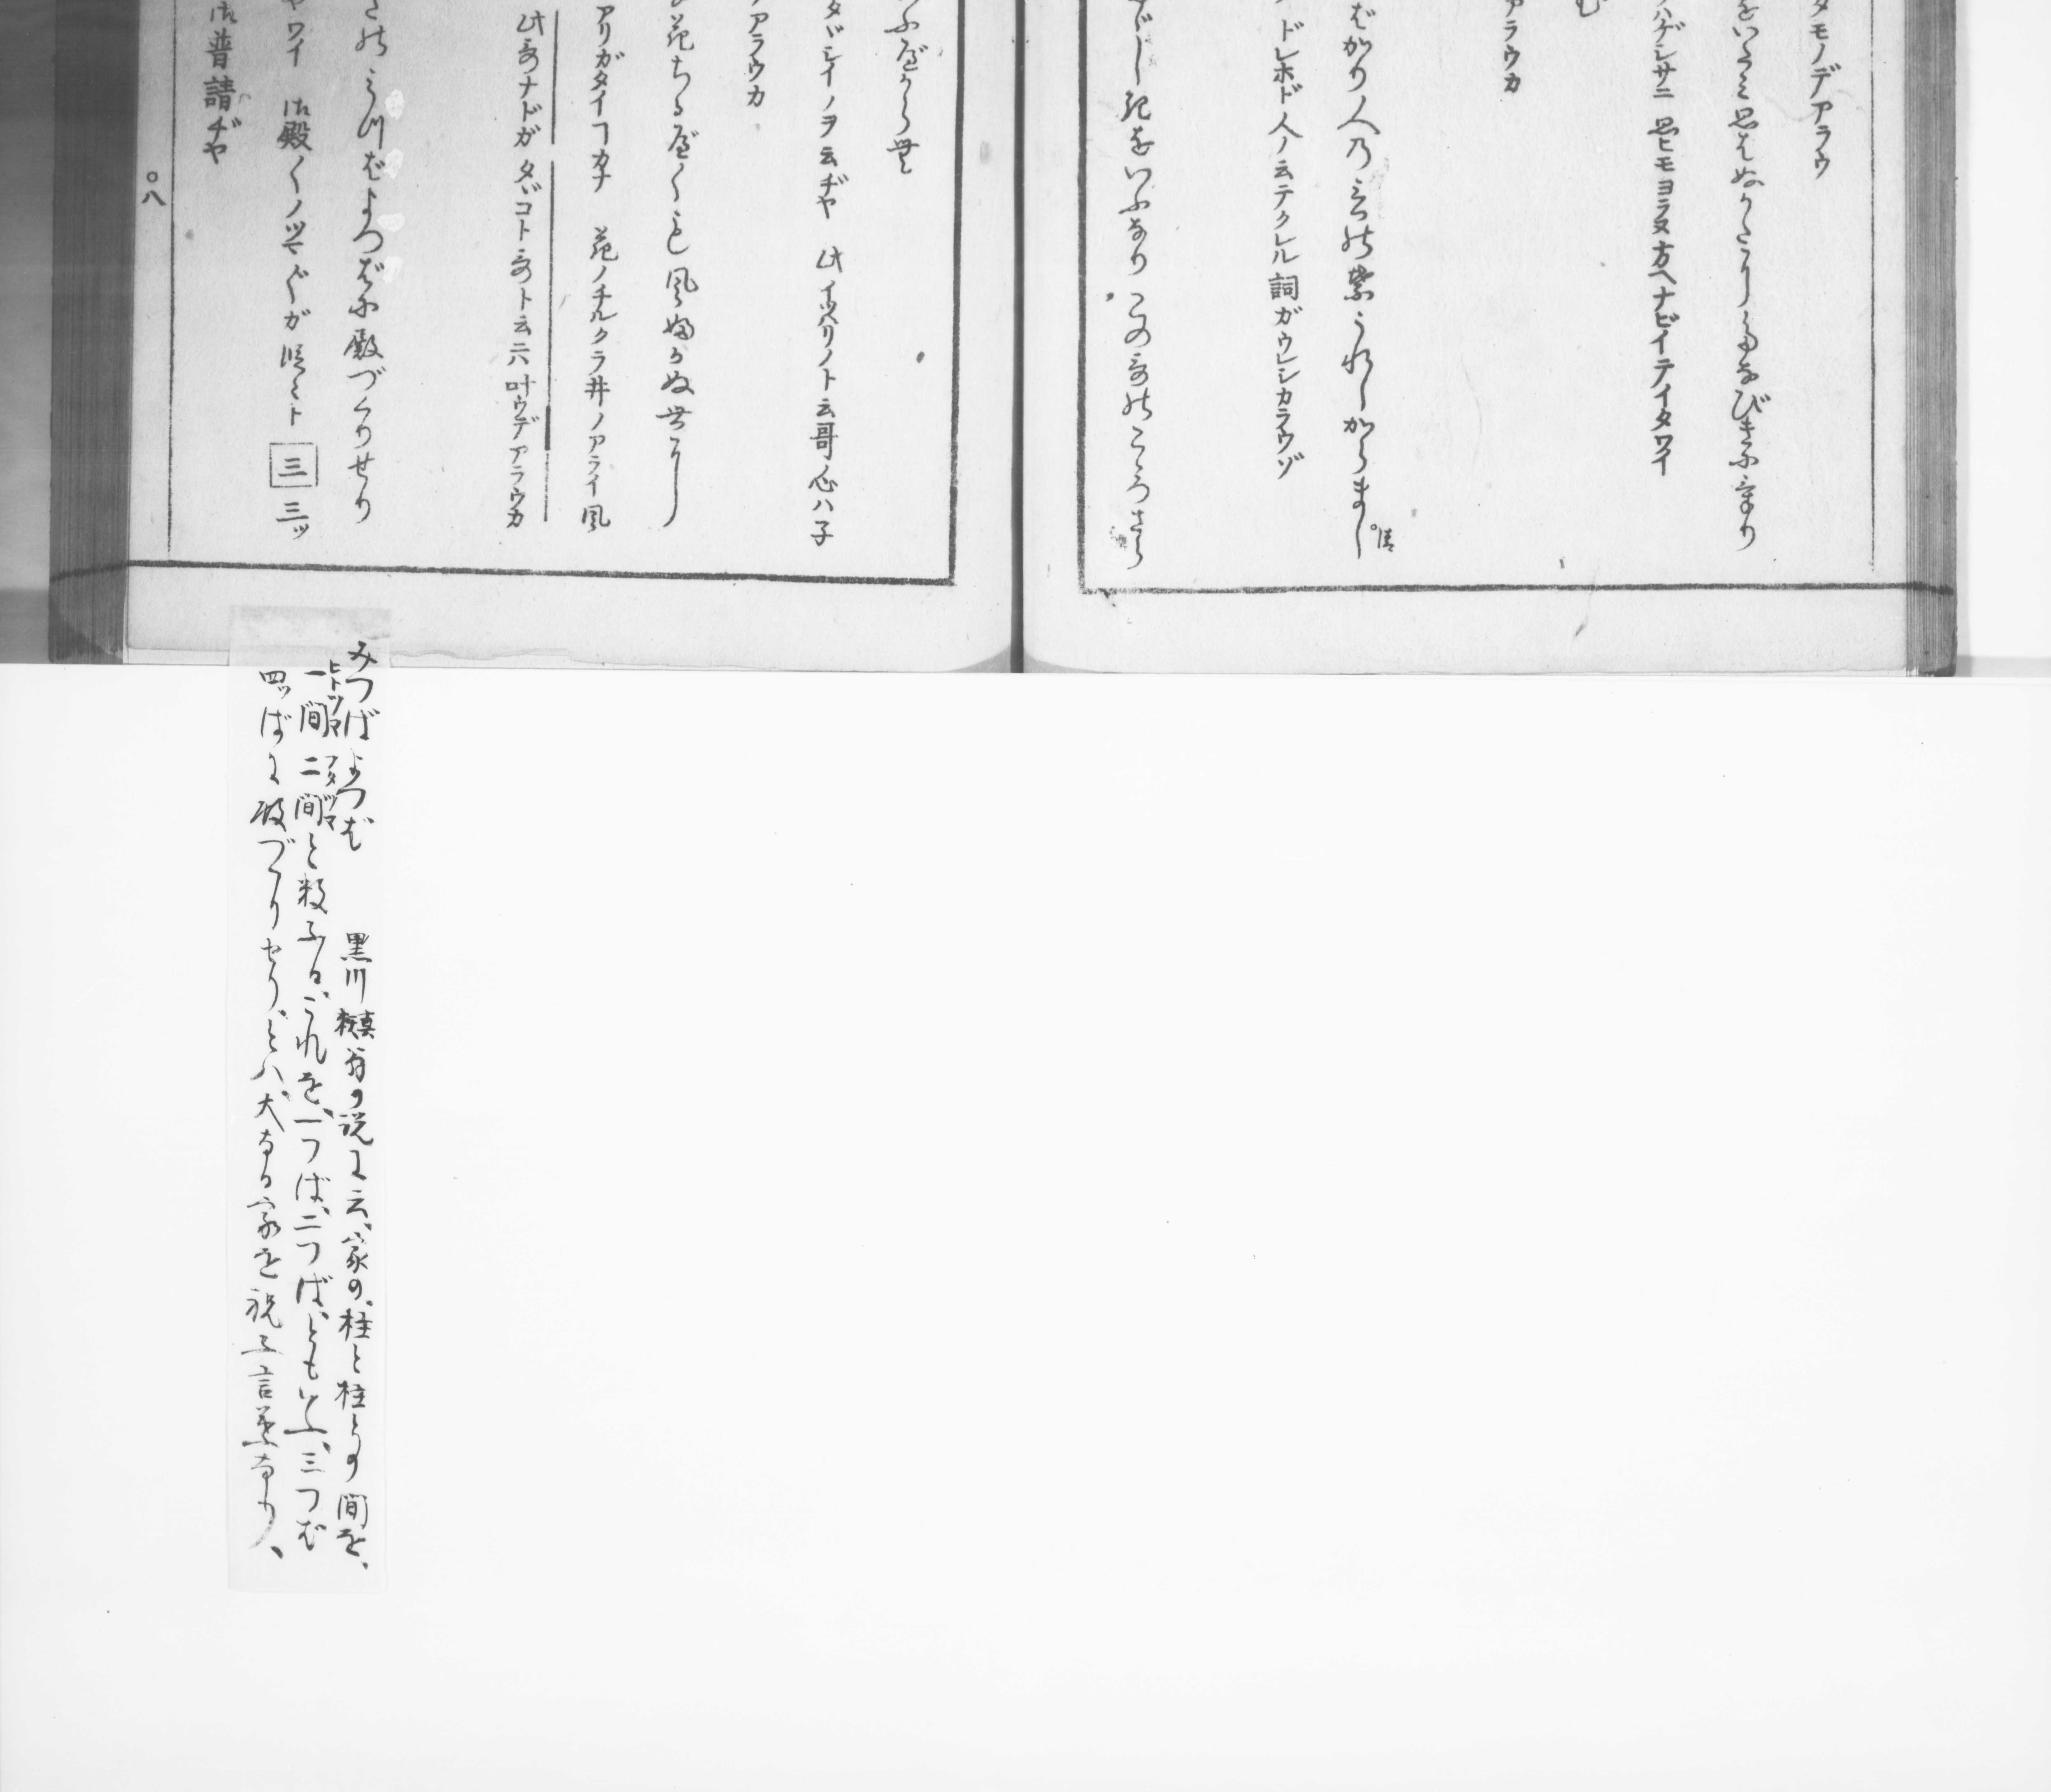 タモノデアラウ
をいたみ思はぬかたにたなびきにけり
ハゲシサニ 思ヒモヨラヌ方ヘナビイテイタワイ
む
アラウカ
ばかり人の言の葉うれしからまし
ドレホド人ノ云テクレル詞ガウレシカラウゾ
たゞしきをいふなり この哥のこゝろさら
タヾシイノヲ云ヂヤ 此イツハリノト云哥ノ心ハ子
アラウカ
花ちるべくも風ふかぬ世に
アリガタイコカナ 花ノチルクラ井ノアライ風
此哥ナドガ タヾコト哥ト云ニハ叶ウデアラウカ
みつばよつばに殿づくりせり
ヤワイ 御殿〳〵ノツマ〴〵ガ 段々ト 三 三ツ
御普請ヂヤ
○八
みつばよつば 黒川真頼翁の説に云、家の、柱と柱との間を、
一間二間と数ふる、これを、一つば、二つば、ともいふ、三つば
ヒトツマ フタツマ
四ツばに殿づくりせり、とハ、大なる家を祝ふ言葉なり、